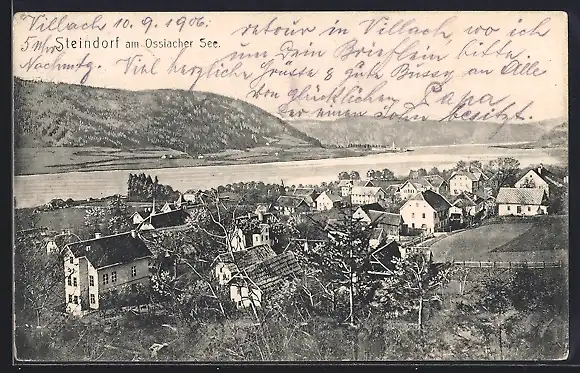 Villach 10.9.1906. retour in Villach, wo ich
5 Uhr um Dein Brieflein bitte.
Nachmttg. Viel herzliche Grüsse & gute Bussy an Alle
Steindorf am Ossiacher See.
von glücklichen Papa
der einen Sohn besitzt.